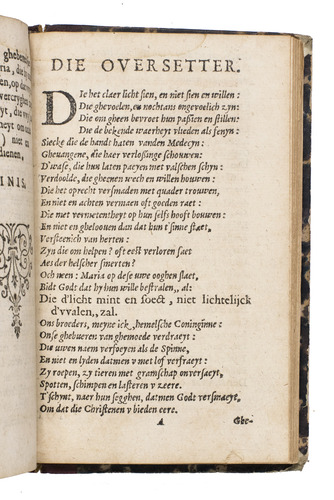 ghebenedi
ria, die
DIE OVERSETTER.
Die het claer licht sien, en niet sien en willen:
Die ghevoelen, en nochtans ongevoelich zyn:
Die om gheen bevroet hun passien en stillen:
Die de bekende waerheyt vlieden als fenyn:
Siecke die de hands haten vanden Medecyn:
Ghevangene, die haer verlossinge schouwen:
D'wase, die hun laten payen met valschen schyn:
Verdoolde, die gheenen wech en willen houwen:
Die het oprecht versmaden met quader trouwen,
En niet en achten vermaen oft goeden raet:
Die met vermetentheyt op hun selfs hooft bouwen:
En niet en ghelooven dan dat hun t'sinne staet,
Versteenich van herten:
Zyn die om helpen? oft eest verloren saet
Aes der helscher smerten?
Och neen: Maria op dese uwe ooghen slaet,
Bidt God: dat hy hun wille bestralen,, al:
Die d'licht mint en soect, niet lichtelijck
d'vvalen,, zal.
Ons broeders, meyne ick, hemelsche Coninginne:
Onse ghebueren van ghemoede verdraeyt:
Die uwen naem verfoeyen als de Spinne,
En niet en lyden datmen v met lof verfraeyt:
Zy roepen, zy tieren met gramschap onversaeyt,
Spotten, schimpen en lasteren v zeere.
T'schynt, naer hun segghen, datmen Godt versmaeyt,
Om dat die Christenen v bieden eere.
A
Ghe-
dienen,
INIS.